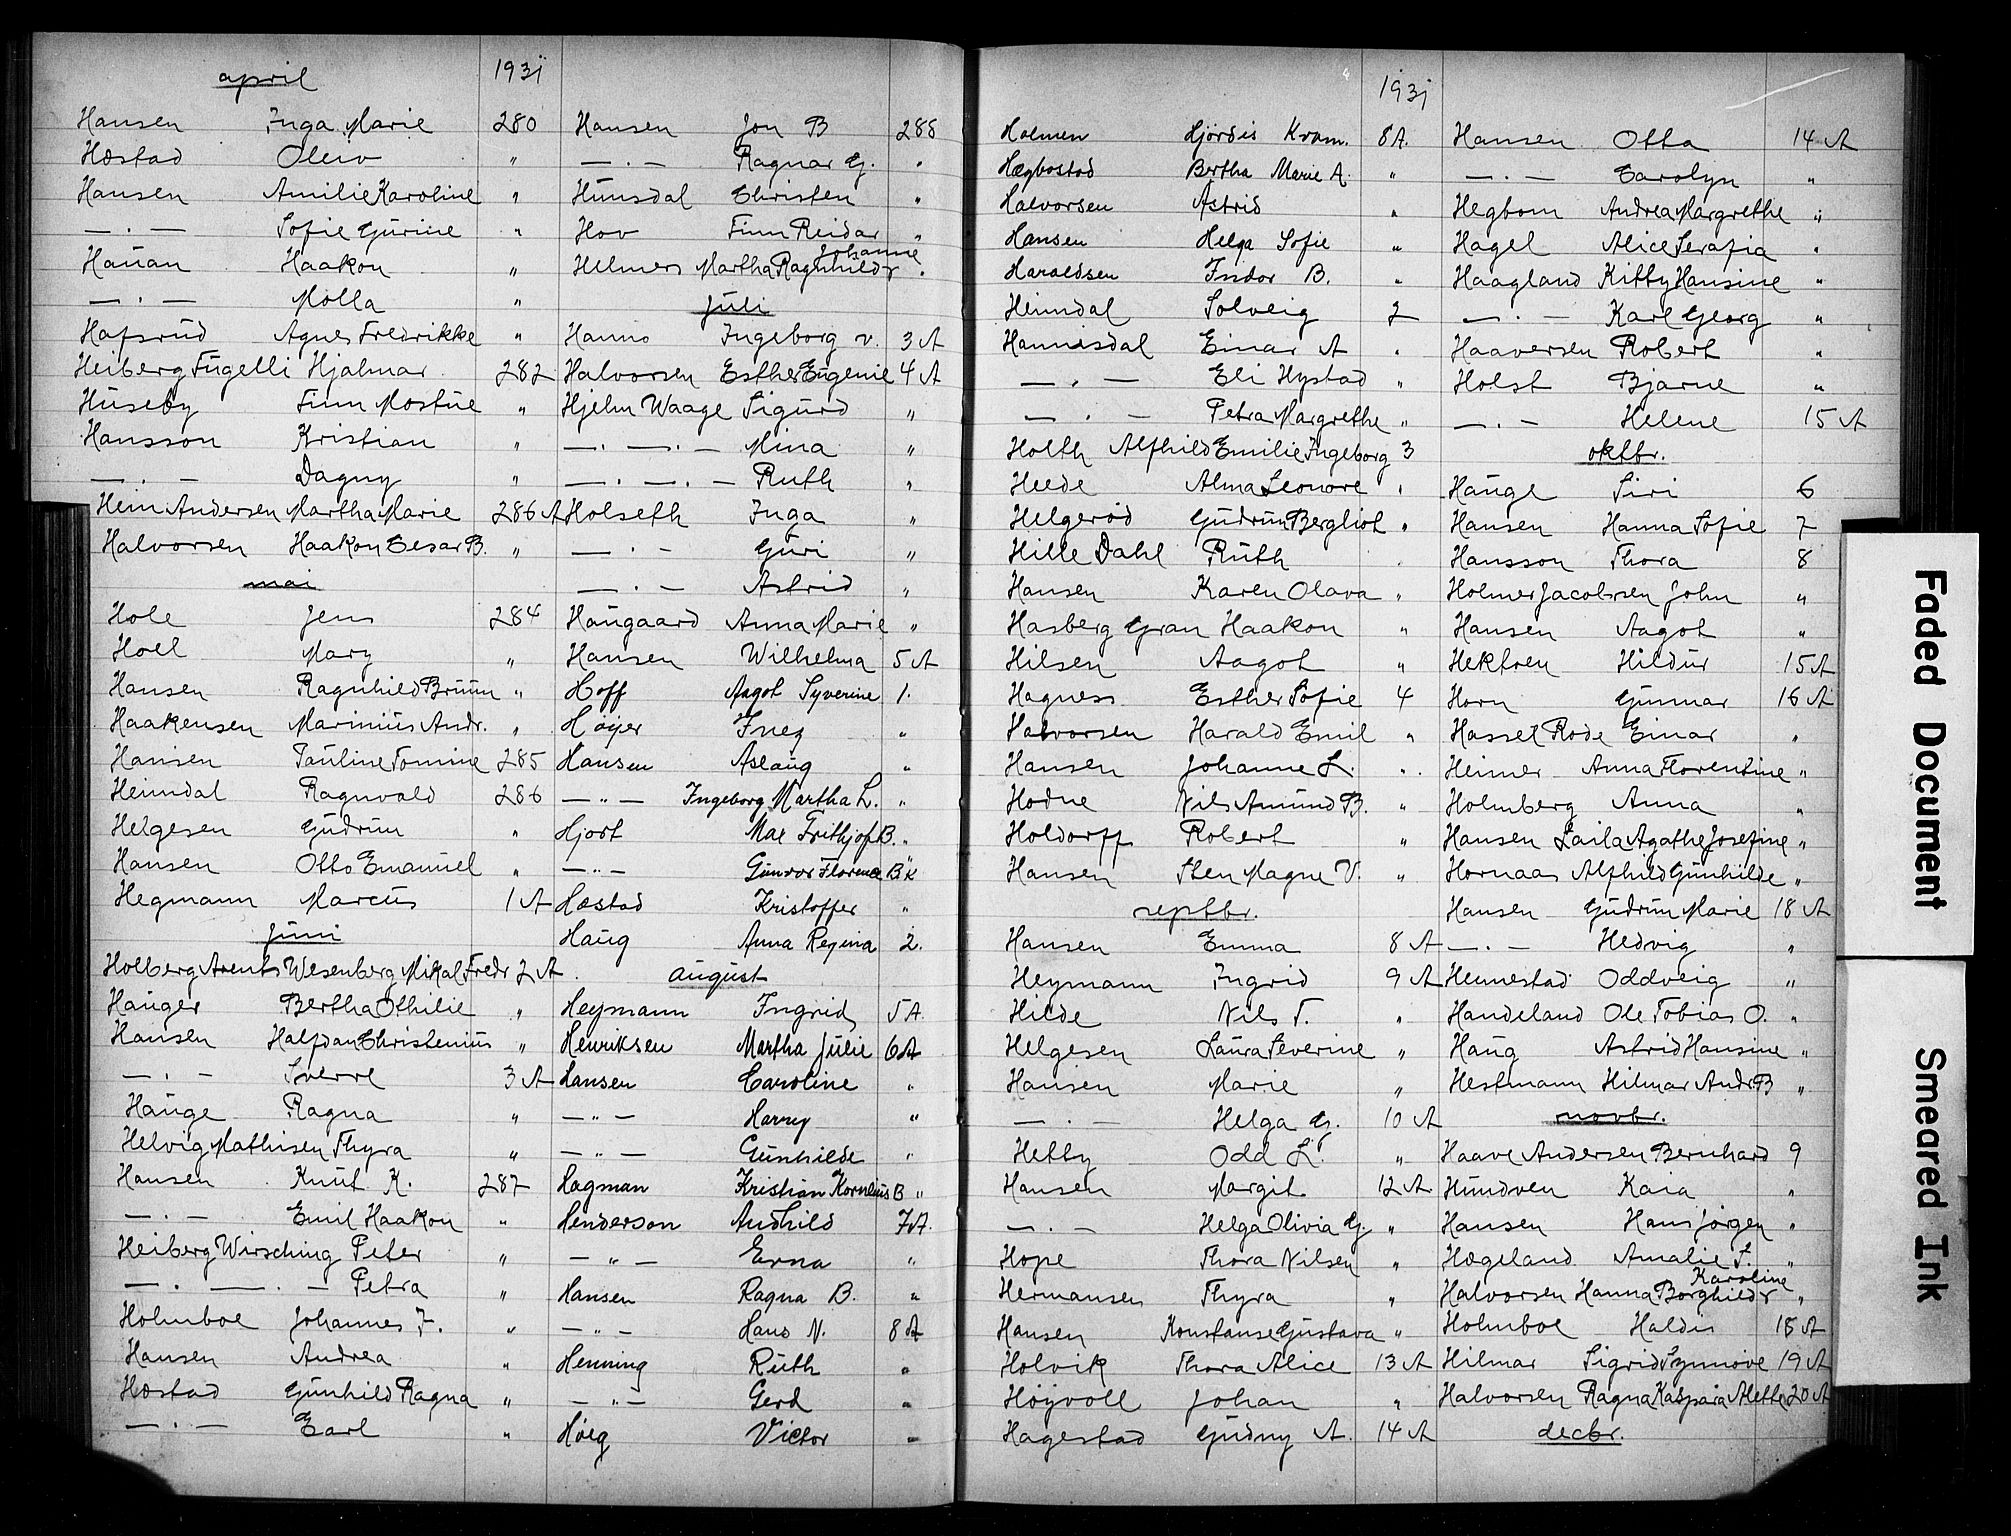 april 1931
Hansen Inga Marie 280
Hæstad Oleiv "
Hansen Amilie Karoline "
— . — Sofie Gurine "
Hauan Haakon "
— . — Molla "
Hafsrud Agnes Fredrikke "
Heiberg Fugelli Hjalmar 282
Huseby Finn Mostue "
Hansson Kristian "
— . — Dagny "
Heim Andersen Martha Marie 286 A
Halvorsen Haakon Cesar B. "
mai
Hole Jens 284
Hoel Mary "
Hansen Ragnhild Bruun "
Haakensen Marinius Andr. "
Hansen Pauline Tomine 285
Heimdal Ragnvald 286
Helgesen Gudrun "
Hansen Otto Emanuel "
Hegmann Marcus 1 A
juni
Holberg Arents Wesenberg Mikal Fredr 2 A
Hauger Bertha Othilie "
Hansen Halfdan Christenius "
— . — Sverre 3 A
Hauge Ragna "
Helvig Mathisen Thyra "
Hansen Knut K. 287
— . — Emil Haakon "
Heiberg Wirsching Peter "
— . — . — Petra "
Holmboe Johannes F. "
Hansen Andrea "
Hæstad Gunhild Ragna "
— . — Earl "
Hansen Jon B 288
— . — Ragnar G. "
Hunsdal Christen "
Hov Finn Reidar "
Johanne
Helmers Martha Ragnhild "
juli
Hanno Ingeborg v. 3 A
Halvorsen Esther Eugenie 4 A
Hjelm Waage Sigurd "
— . — . — Mina "
— . — . — Ruth "
Holseth Inga "
— . — Guri "
— . — Astrid "
Haugaard Anna Marie "
Hansen Wilhelma 5 A
Hoff Aagot Syverine 1.
Høyer Inez "
Hansen Aslaug "
— " — Ingeborg Martha L. "
Hjort Max Frithjof B. "
— " — Gunvor Florence B "
Hæstad Kristoffer "
Haug Anna Regina 2.
august
Heymann Ingrid 5 A.
Henriksen Martha Julie 6 A
Hansen Caroline "
— " — Harry "
— " — Gunhilde "
Hagman Kristian Kornelius B "
Henderson Audhild 7 A.
— " — Erna "
Hansen Ragna B. "
— " — Hans N. 8 A
Henning Ruth "
— " — Gerd "
Høeg Victor "
1931
Holmen Hjördis Kvam. 8 A.
Hægbostad Bertha Marie A. "
Halvorsen Astrid "
Hansen Helga Sofie "
Haraldsen Indor B. "
Heimdal Solveig 2
Hannisdal Einar A "
— . — Eli Hystad "
— . — Petra Margrethe "
Holth Alfhild Emilie Ingeborg 3
Heede Alma Leonore "
Helgerød Gudrun Bergliot "
Hille Dahl Ruth "
Hansen Karen Olava "
Hasberg Gran Haakon "
Hilsen Aagot "
Hagness Esther Sofie 4
Halvorsen Harald Emil "
Hansen Johanne L. "
Hodne Nils Amund B. "
Holdorff Robert "
Hansen Sten Magne V. "
septbr.
Hansen Emma 8 A
Heymann Ingrid 9 A
Hilde Nils T. "
Helgesen Laura Severine "
Hansen Marie "
— . — Helga G. 10 A
Hetty Odd L. "
Hansen Margit 12 A
— . — Helga Olivia G. "
Hope Thora Nilsen "
Hermansen Thyra "
Hansen Konstanse Gustava "
Holvik Thora Alice 13 A
Høyvoll Johan "
Hagestad Gudny A. 14 A
Hansen Otta 14 A
— . — Carolyn "
Hegbom Andrea Margrethe "
Hagel Alice Serafia "
Haagland Kitty Hansine "
— . — Karl Georg "
Haaversen Robert "
Holst Bjarne "
— . — Helene 15 A
oktbr.
Hauge Siri 6
Hansen Hanna Sofie 7
Hansson Thora 8
Holmer Jacobsen John "
Hansen Aagot "
Hektoen Hildur 15 A
Horn Gunnar 16 A
Hassel Rode Einar "
Heimer Anna Florentine "
Holmberg Anna "
Hansen Laila Agathe Josefine "
Hornaas Alfhild Gunhilde "
Hansen Gudrun Marie 18 A
— . — Hedvig "
Hennestad Oddveig "
Handeland Ole Tobias O. "
Haug Astrid Hansine "
Hestmann Hilmar Andr. B "
novbr.
Haave Andersen Bernhard 9
Hundven Kaia "
Hansen Hans Jörgen "
Hægeland Amalie S. "
Karoline
Halvorsen Hanna Borghild "
Holmboe Haldis 18 A
Hilmar Sigrid Synnöve 19 A
Halvorsen Ragna Kaspara Alette 20 A
decbr.
Faded Document
Smeared Ink